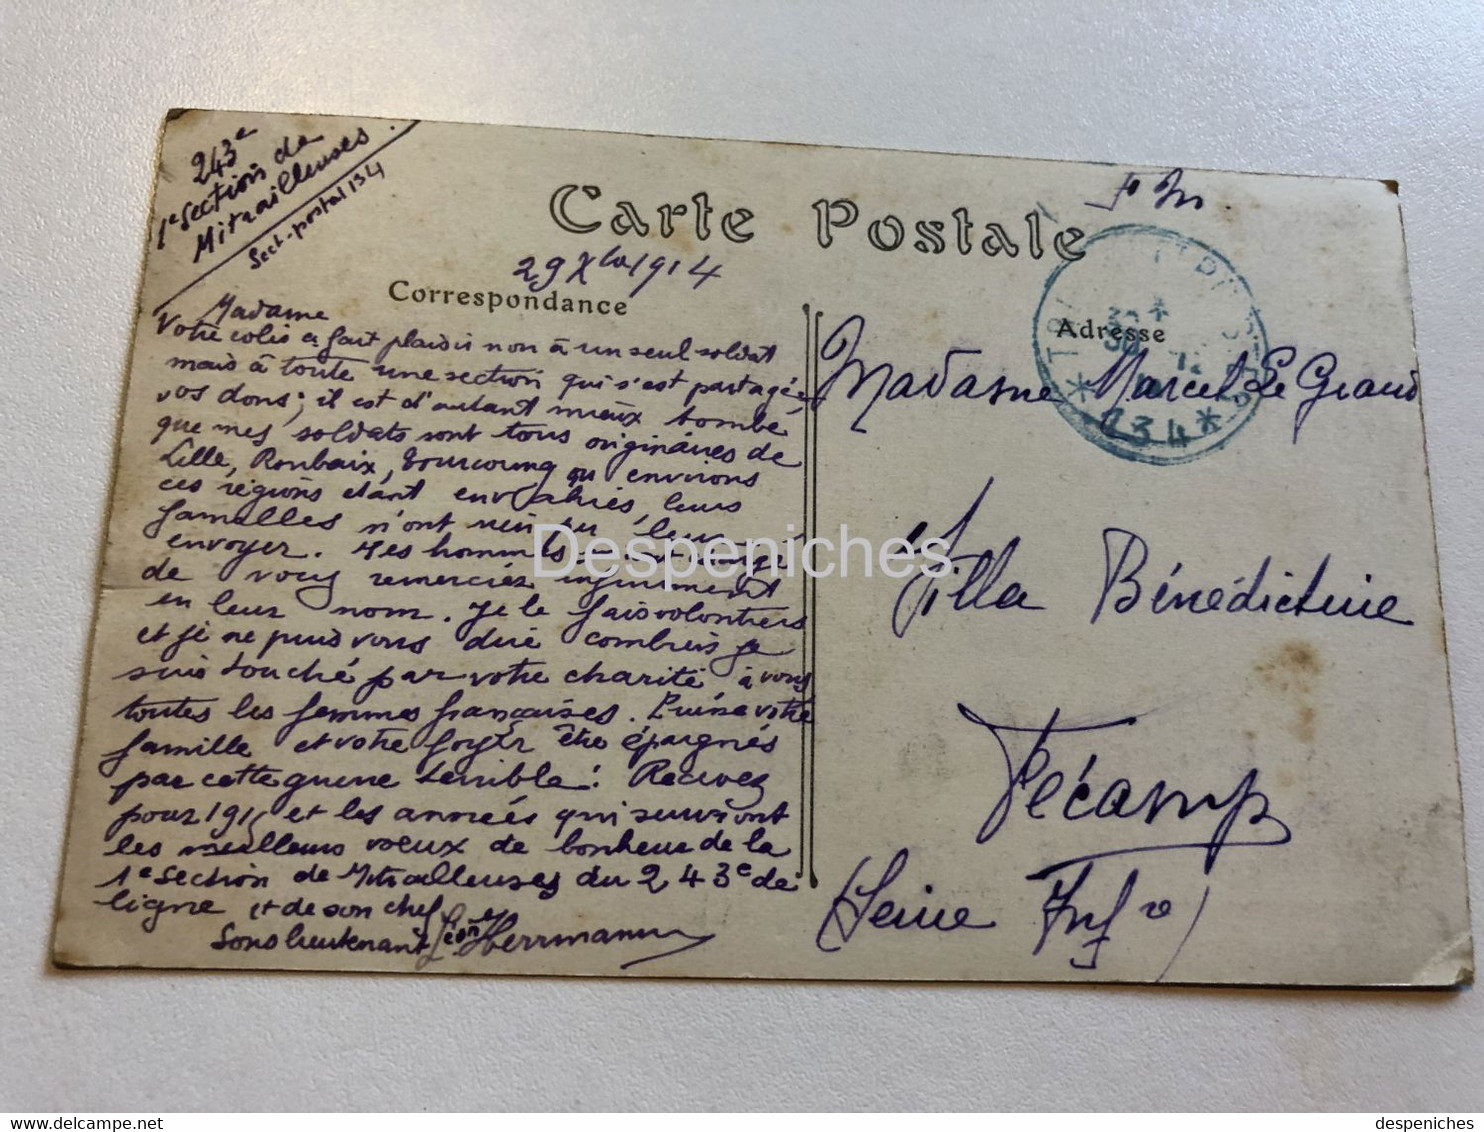 243e
1e Section de
Mitrailleuses.
Sect-postal 134
Carte Postale
F M
29 Xbre 1914
Correspondance
Adresse
* 134 *
Madame
Votre colis a fait plaisir non à un seul soldat
mais à toute une section qui s'est partagée
vos dons; il est d'autant mieux tombé
que mes soldats sont tous originaires de
Lille, Roubaix, Tourcoing ou environs
ces régions étant envahies, leurs
familles n'ont rien pu leur
envoyer. Mes hommes m'ont chargé
de vous remercier infiniment
en leur nom. Je le fais volontiers
et je ne puis vous dire combien je
suis touché par votre charité à vous
toutes les femmes françaises. Puisse votre
famille et votre foyer être épargnés
par cette guerre terrible! Recevez
pour 1915 et les années qui suivront
les meilleurs voeux de bonheur de la
1e Section de Mitrailleuses du 243e de
ligne et de son chef
Sous lieutenant Léon Herrmann
Madame Marcel Le Grand
Villa Bénédictine
Fécamp
(Seine Infre)
Despeniches
www.delcampe.net
despeniches